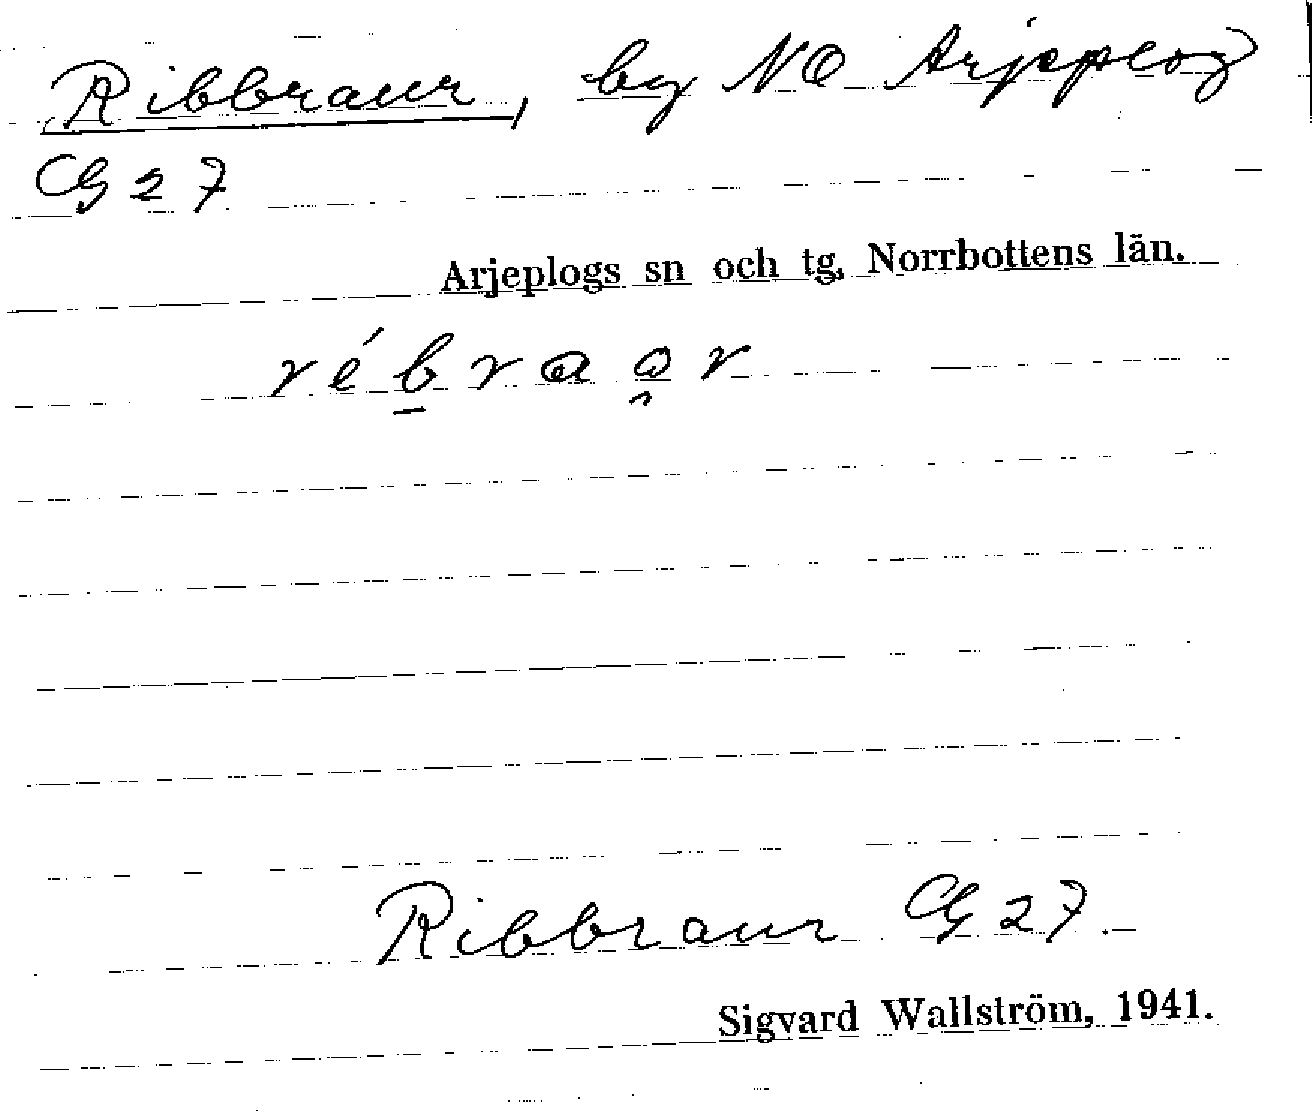 Ribbraur, by NO Arjeplog
CG 27
Arjeplogs sn och tg, Norrbottens län.
rébraɷr
Ribbraur CG 27.
Sigvard Wallström, 1941.